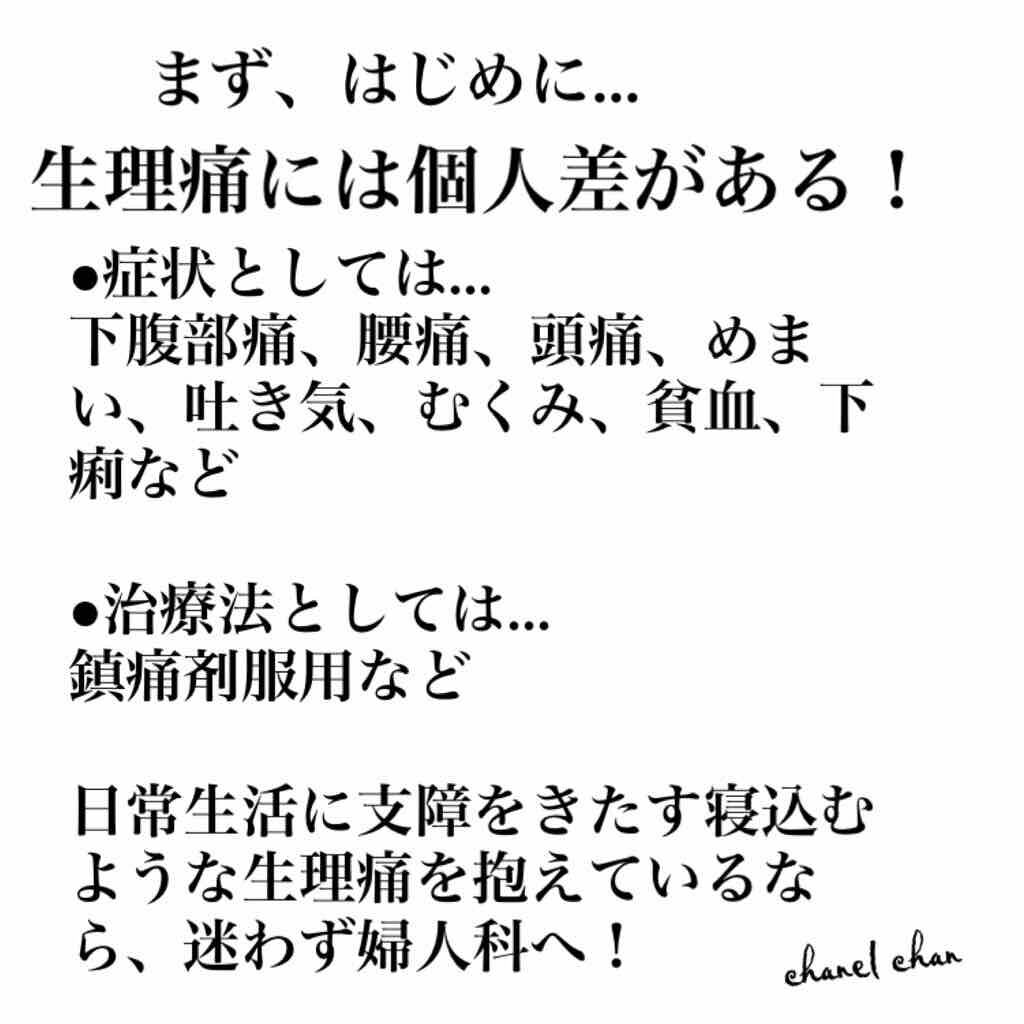 まず、はじめに...
生理痛には個人差がある！
●症状としては...
下腹部痛、腰痛、頭痛、めま
い、吐き気、むくみ、貧血、下
痢など
●治療法としては...
鎮痛剤服用など
日常生活に支障をきたす寝込む
ような生理痛を抱えているな
ら、迷わず婦人科へ！
chanel chan